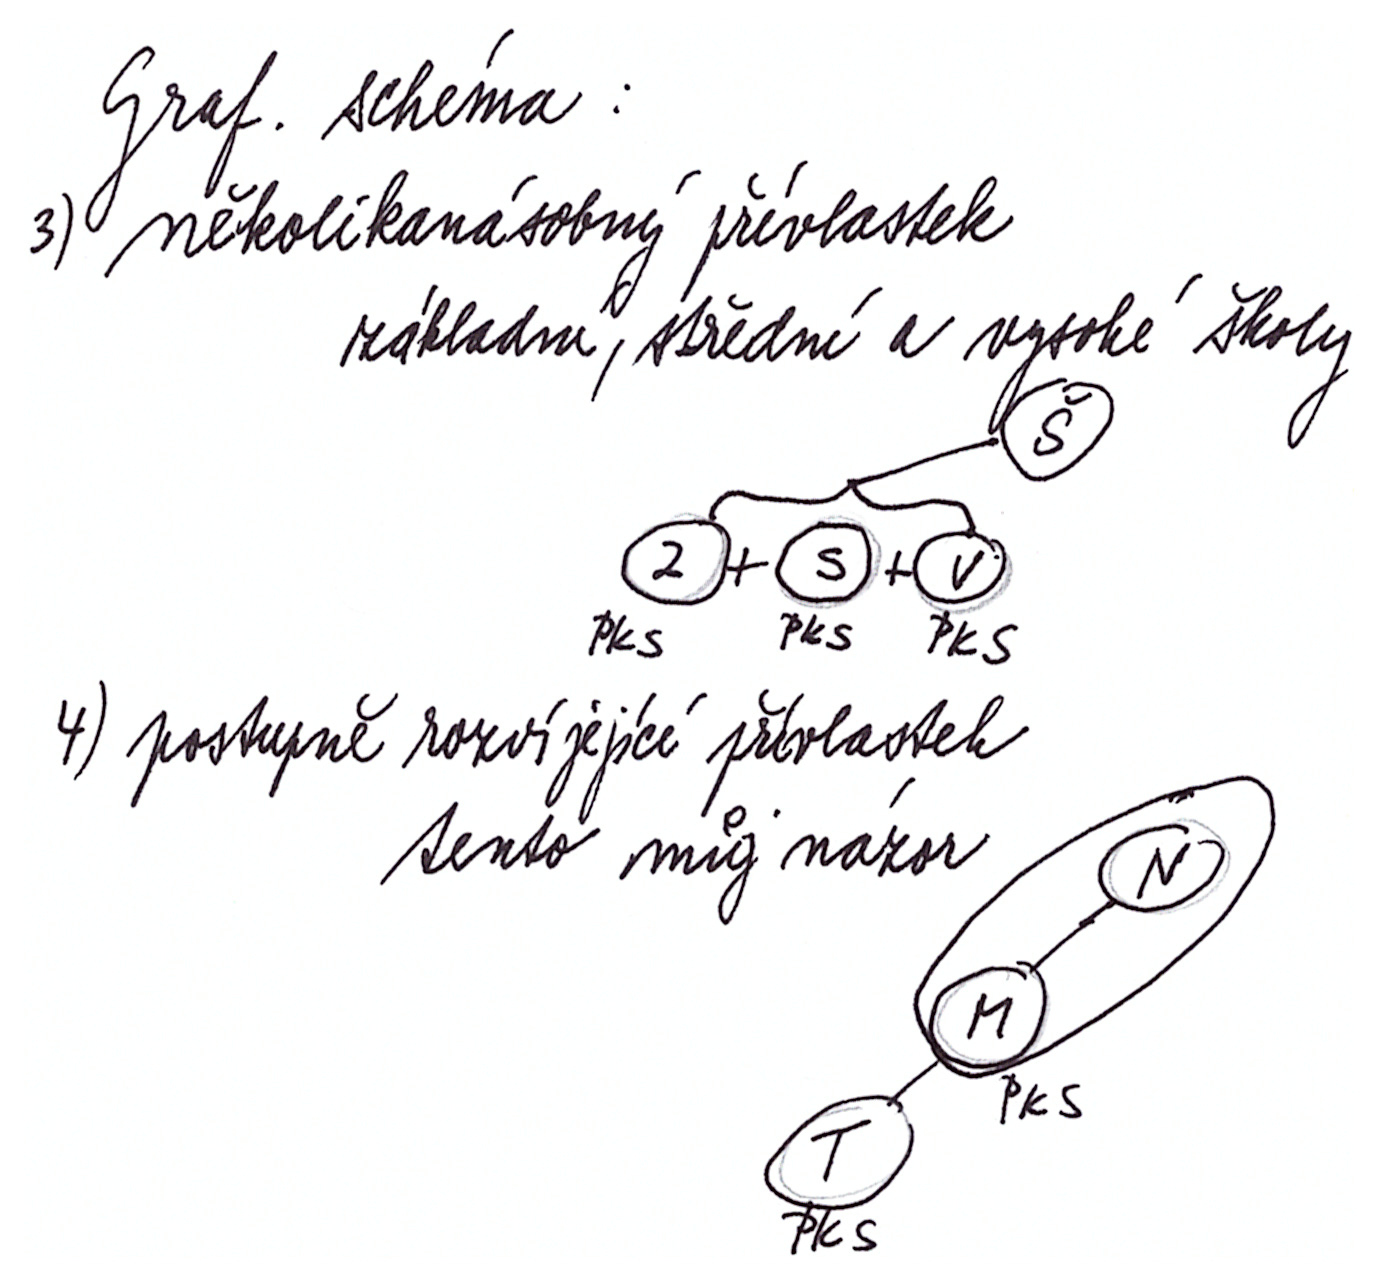 Graf. schéma :
3) několikanásobný přívlastek
základní, střední a vysoké školy
Š
Z + S + V
PKS PKS PKS
4) postupně rozvíjející přívlastek
tento můj názor
N
M
PKS
T
PKS